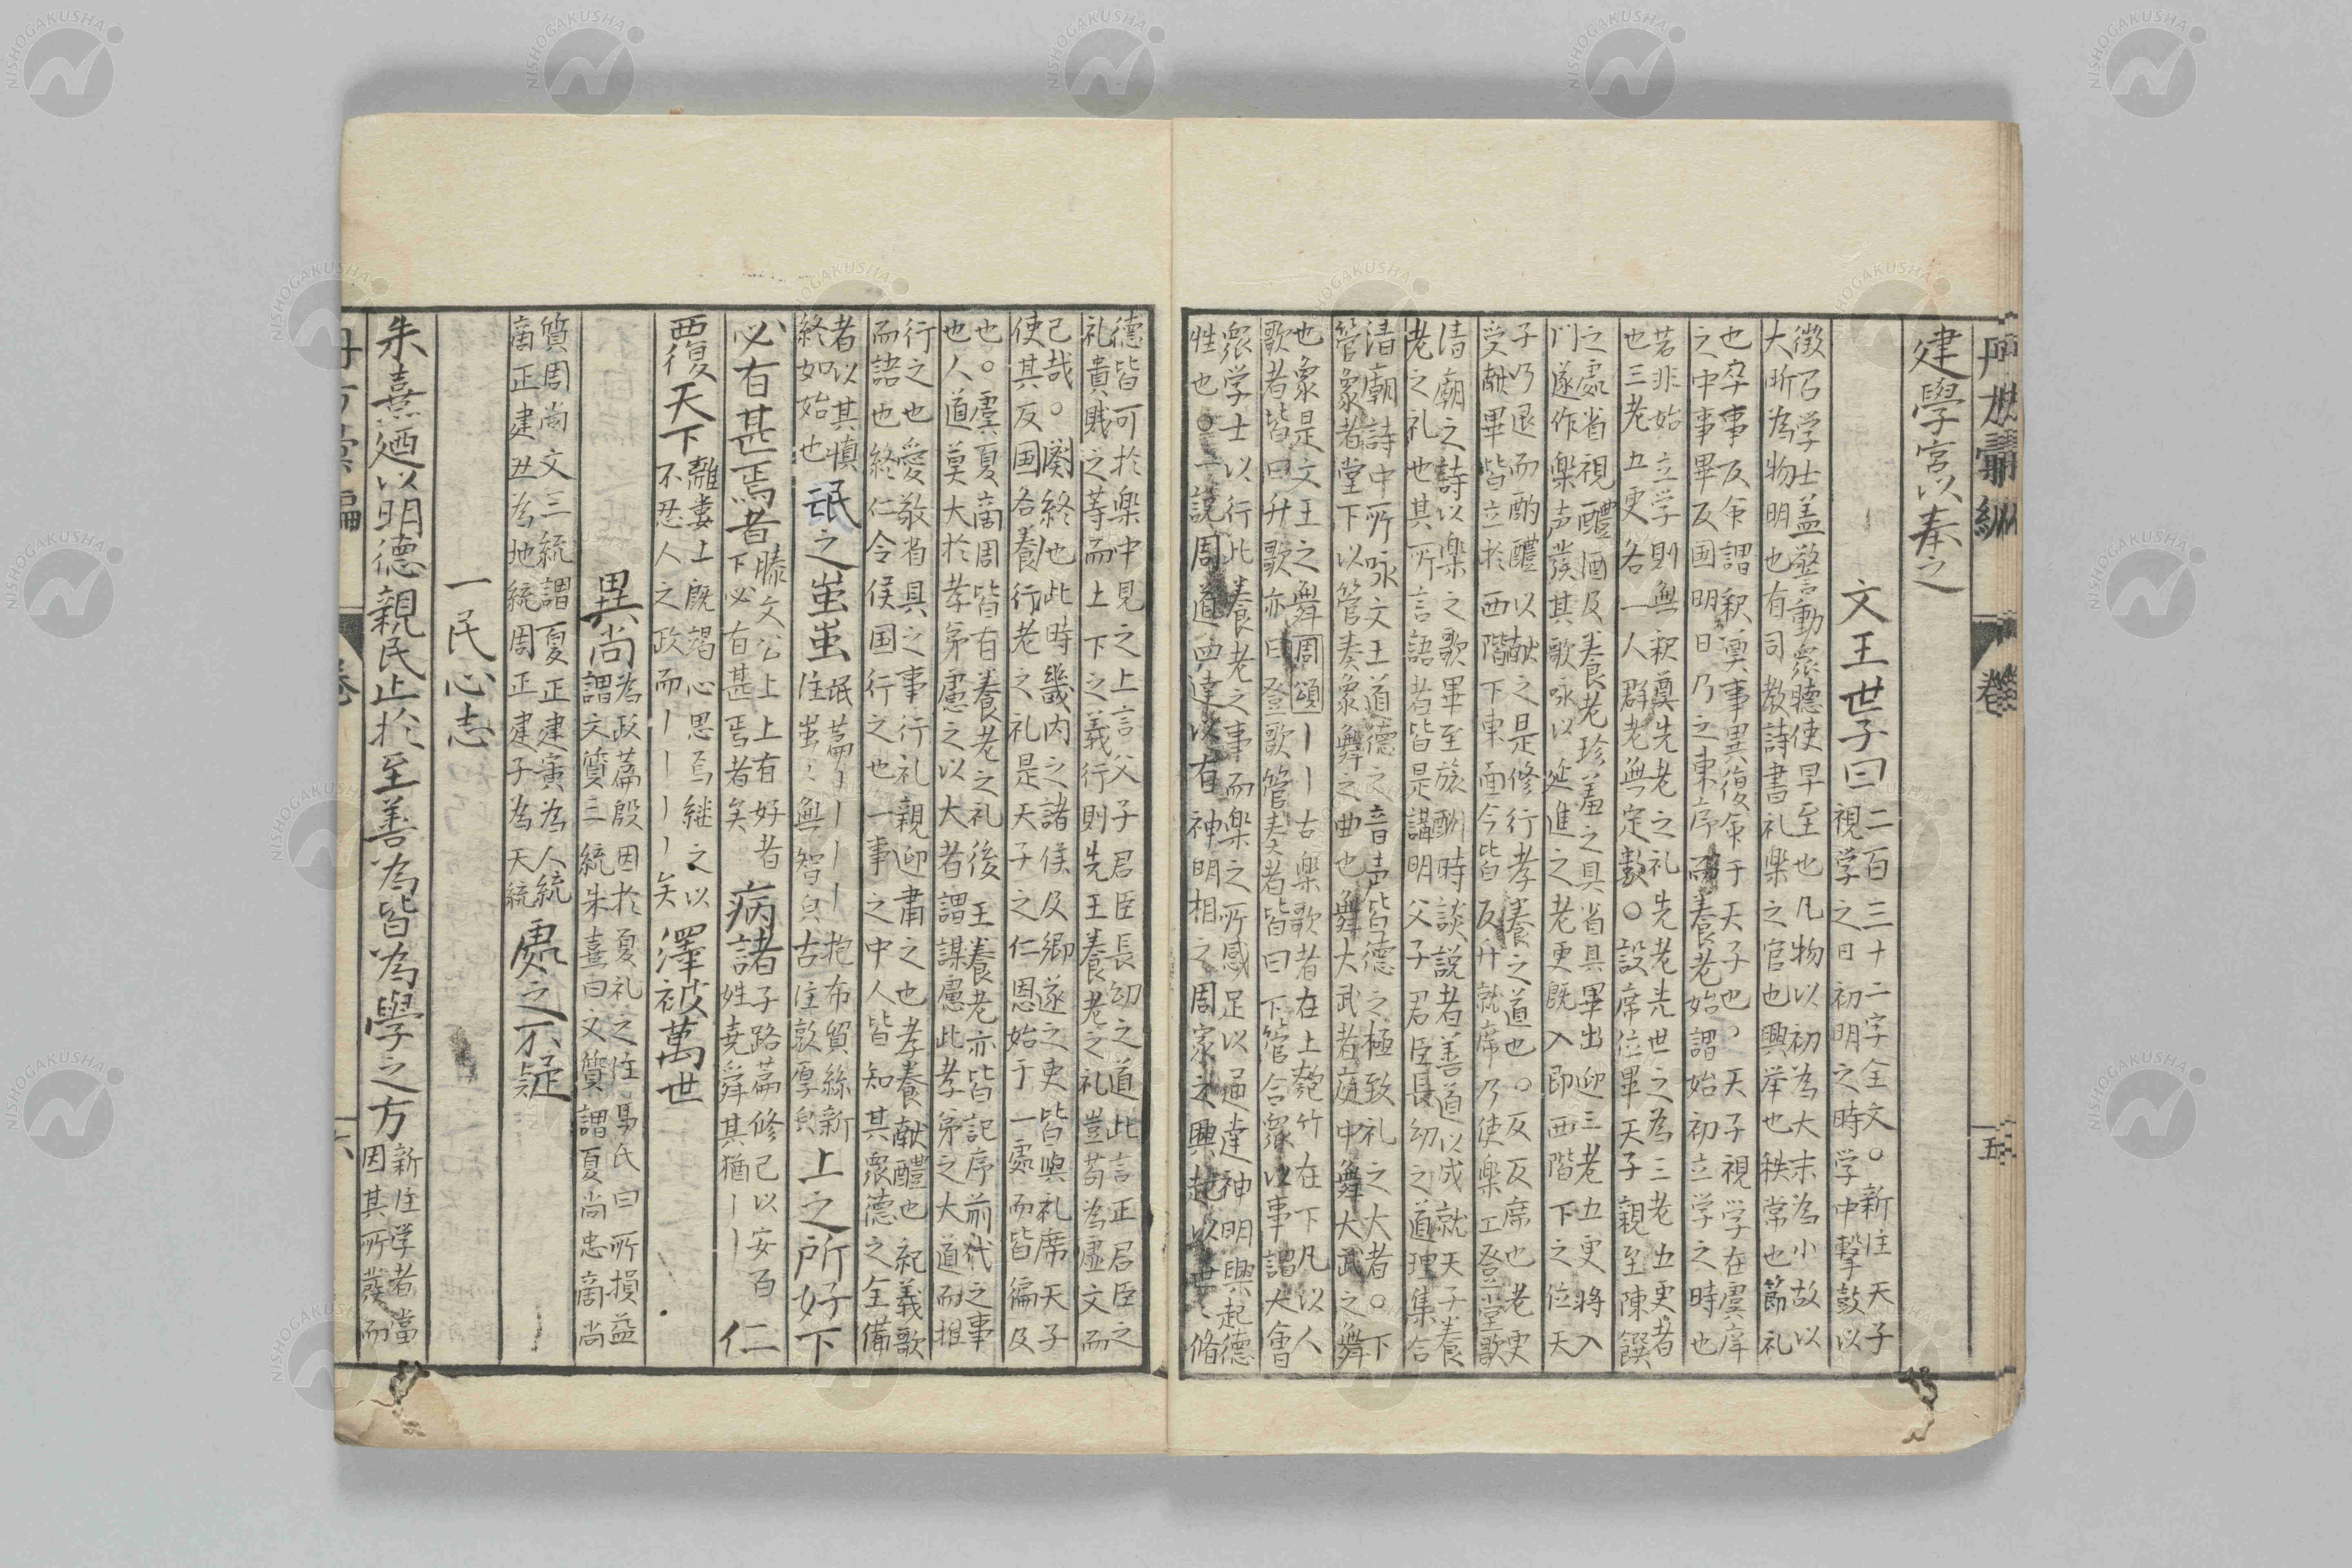 建學宮以奉之
文王世子曰
二百三十二字全文○新注天子
視学之日初明之時学中撃鼓以
徴召学士盖警動衆聴使早至也凡物以初為大末為小故以
大昕為物明也有司教詩書礼楽之官也興举也秩常也節礼
也卒事反命謂釈奠事畢復命于天子也、天子視学在虞庠
之中事畢反国明日乃之東序而養老始謂始初立学之時也
若非始立学則無釈奠先老之礼先老先世之為三老五更者
也三老五更各一人群老無定数○設席位畢天子親至陳饌
之處省視醴酒及養老珍羞之具省具畢出迎三老五更将入
門遂作楽声発其歌咏以延進之老更既入即西階下之位天
子乃退而酌醴以献之是修行孝養之道也○反反席也老更
受献畢皆立於西階下東面今皆反升就席乃使楽工登堂歌
清廟之詩以楽之歌畢至旅酬時談説者善道以成就天子養
老之礼也其所言語者皆是講明父子君臣長幼之道理集合
清廟詩中所咏文王道德之音声皆德之極致礼之大者○下
管象者堂下以管奏象舞之曲也舞大武者庭中舞大武之舞
也象是文王之舞周頌｜｜古楽歌者在上匏竹在下凡以人
歌者皆曰升歌亦曰登歌管奏者皆曰下管合衆以事謂大會
衆学士以行此養老之事而楽之所感足以通達神明興起德
性也○一説周道四達以有神明相之周家之興起以世〻脩
德皆可於楽中見之上言父子君臣長幼之道此言正君臣之
礼貴賎之等而上下之義行則先王養老之礼豈苟為虚文而
已哉○闋終也此時畿内之諸侯及郷遂之吏皆與礼席天子
使其反国各養行老之礼是天子之仁恩始于一處而皆徧及
也○虞夏商周皆有養老之礼後王養老亦皆記序前代之事
也人道莫大於孝弟慮之以大者謂謀慮此孝弟之大道而推
行之也愛敬省具之事行礼親迎肅之也孝養献醴也紀義歌
而語也終仁令侯国行之也一事之中人皆知其衆德之全備
者以其慎
終如始也
氓之蚩蚩
氓篇｜｜｜｜抱布貿絲新
注蚩〻無智皃古注敦厚皃
上之所好下
必有甚焉者
滕文公上上有好者
下必有甚焉者矣
病諸
子路篇修己以安百
姓堯舜其猶｜｜
仁
覆天下
離婁上既竭心思焉継之以
不忍人之政而｜｜｜｜矣
澤被萬世
異尚
為政篇殷因於夏礼之注馬氏曰所損益
謂文質三統朱熹曰文質謂夏尚忠商尚
質周尚文三統謂夏正建寅為人統
商正建丑為地統周正建子為天統
處之不疑
一民心志
朱熹廼以明德親民止於至善為皆為學之方
新注学者當
因其所発而
五